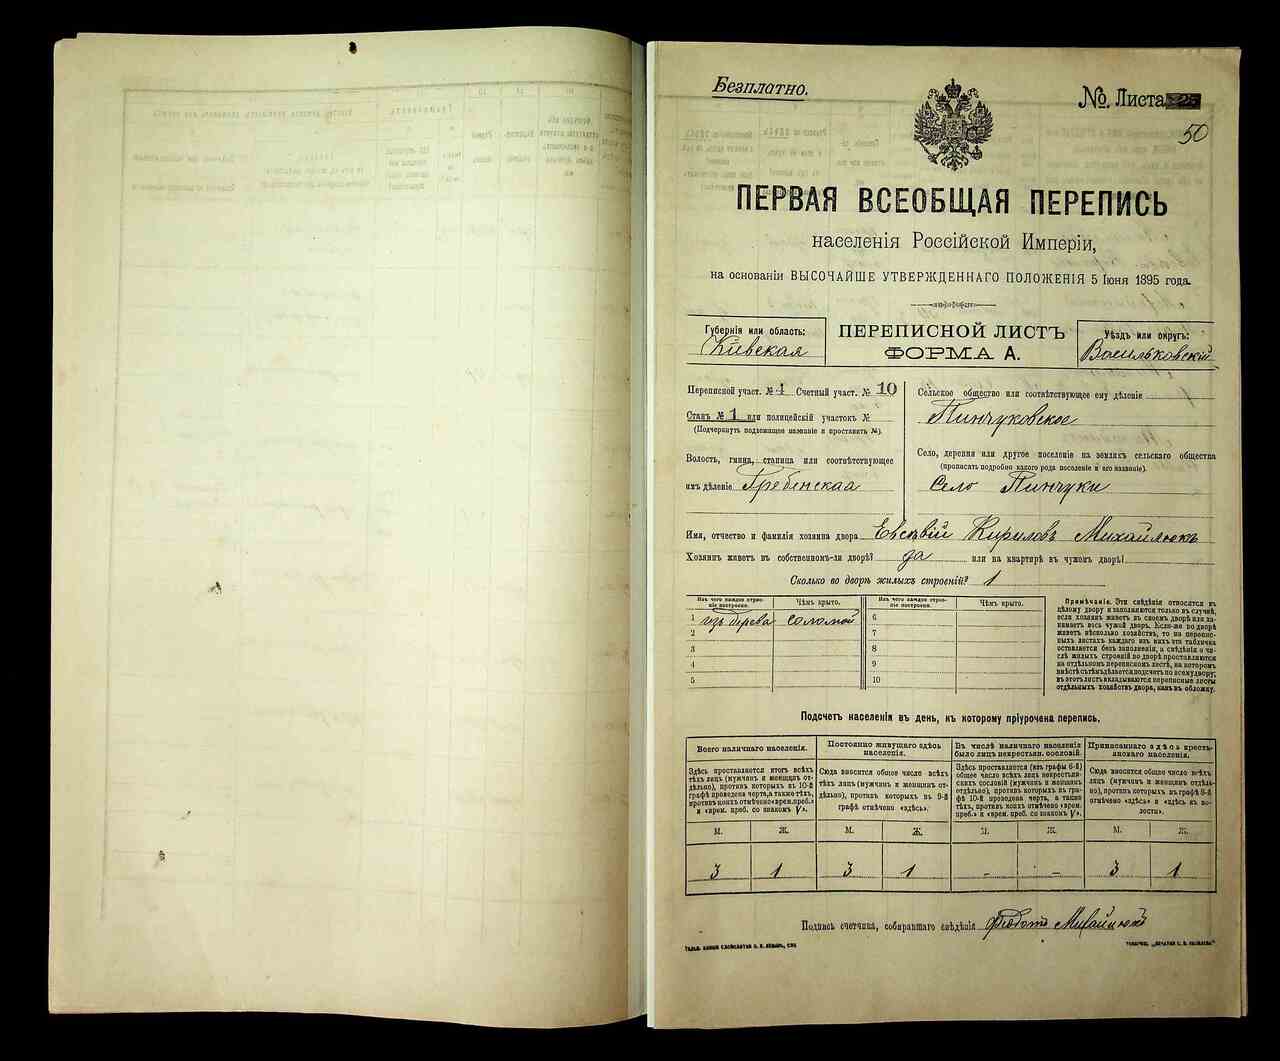 Безплатно.
№ Листа 25
50
ПЕРВАЯ ВСЕОБЩАЯ ПЕРЕПИСЬ
населенія Россійской Имперіи,
на основаніи ВЫСОЧАЙШЕ УТВЕРЖДЕННАГО ПОЛОЖЕНІЯ 5 Іюня 1895 года.
Губернія или область:
Кіевская
ПЕРЕПИСНОЙ ЛИСТЪ
ФОРМА А.
Уѣздъ или округъ:
Васильковскій
Переписной участ. № 1 Счетный участ. № 10
Станъ № 1 или полицейскій участокъ №
(Подчеркнуть подлежащее названіе и проставить №).
Волость, гмина, станица или соотвѣтствующее
имъ дѣленіе Гребенская
Сельское общество или соотвѣтствующее ему дѣленіе
Пинчуковское
Село, деревня или другое поселеніе на земляхъ сельскаго общества
(прописать подробно какого рода поселеніе и его названіе).
Село Пинчуки
Имя, отчество и фамилія хозяина двора Евсѣвій Кириловъ Михайлюкъ
Хозяинъ живетъ въ собственномъ-ли дворѣ? да или на квартирѣ въ чужомъ дворѣ?
Сколько во дворѣ жилыхъ строеній? 1
Изъ чего каждое строеніе построено. Чѣмъ крыто. Изъ чего каждое строеніе построено. Чѣмъ крыто.
1 изъ дерева соломой 6
2 7
3 8
4 9
5 10
Примѣчаніе. Эти свѣдѣнія относятся къ
цѣлому двору и заполняются только въ случаѣ,
если хозяинъ живетъ въ своемъ дворѣ или занимаетъ
весь чужой дворъ. Если-же во дворѣ
живетъ нѣсколько хозяйствъ, то на переписныхъ
листахъ каждаго изъ нихъ эта табличка
оставляется безъ заполненія, а свѣдѣнія о числѣ
жилыхъ строеній во дворѣ проставляются
на отдѣльномъ переписномъ листѣ, на которомъ
вмѣстѣ съ тѣмъ дѣлается подсчетъ по всему двору;
въ этотъ листъ вкладываются переписные листы
отдѣльныхъ хозяйствъ двора, какъ въ обложку.
Подсчетъ населенія въ день, къ которому пріурочена перепись.
Всего наличнаго населенія.
Здѣсь проставляется итогъ всѣхъ
тѣхъ лицъ (мужчинъ и женщинъ отдѣльно),
противъ которыхъ въ 10-й
графѣ проведена черта, а также тѣхъ,
противъ коихъ отмѣчено «врем. преб.»
и «врем. преб. со знакомъ V».
Постоянно живущаго здѣсь
населенія.
Сюда вносится общее число всѣхъ
тѣхъ лицъ (мужчинъ и женщинъ отдѣльно),
противъ которыхъ въ 9-й
графѣ отмѣчено «здѣсь».
Въ числѣ наличнаго населенія
было лицъ некрестьян. сословій.
Здѣсь проставляется (изъ графы 6-й)
общее число всѣхъ лицъ некрестьянскихъ
сословій (мужчинъ и женщинъ
отдѣльно), противъ которыхъ въ
графѣ 10-й проведена черта, а также
тѣхъ, противъ коихъ отмѣчено «врем.
преб.» и «врем. преб. со знакомъ V».
Приписаннаго здѣсь крестьянскаго
населенія.
Сюда вносится общее число всѣхъ
лицъ (мужчинъ и женщинъ отдѣльно),
противъ которыхъ въ графѣ 8-й
отмѣчено «здѣсь» и «здѣсь въ волости».
М. Ж. М. Ж. М. Ж. М. Ж.
3 1 3 1 - - 3 1
Подпись счетчика, собиравшаго свѣдѣнія Федотъ Михайлюкъ